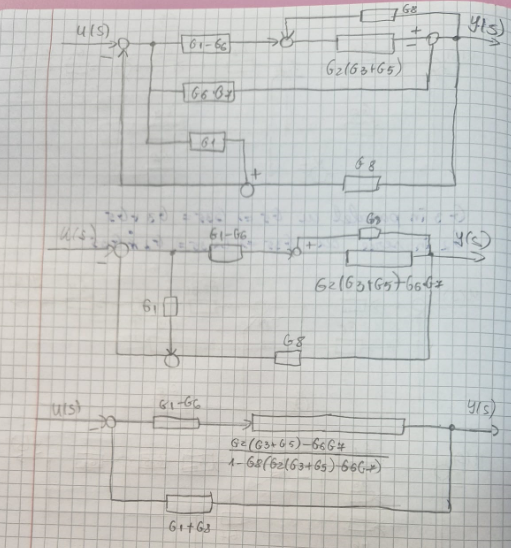 U(s)
G8
y(s)
G1-G6
+
-
-
G2(G3+G5)
G6 G7
G1
+
G8
U(s)
G1-G6
G8
y(s)
-
+
G2(G3+G5)-G6G7
G1
G8
U(s)
G1-G6
y(s)
-
G2(G3+G5)-G6G7
1-G8(G2(G3+G5)-G6G7)
G1+G8